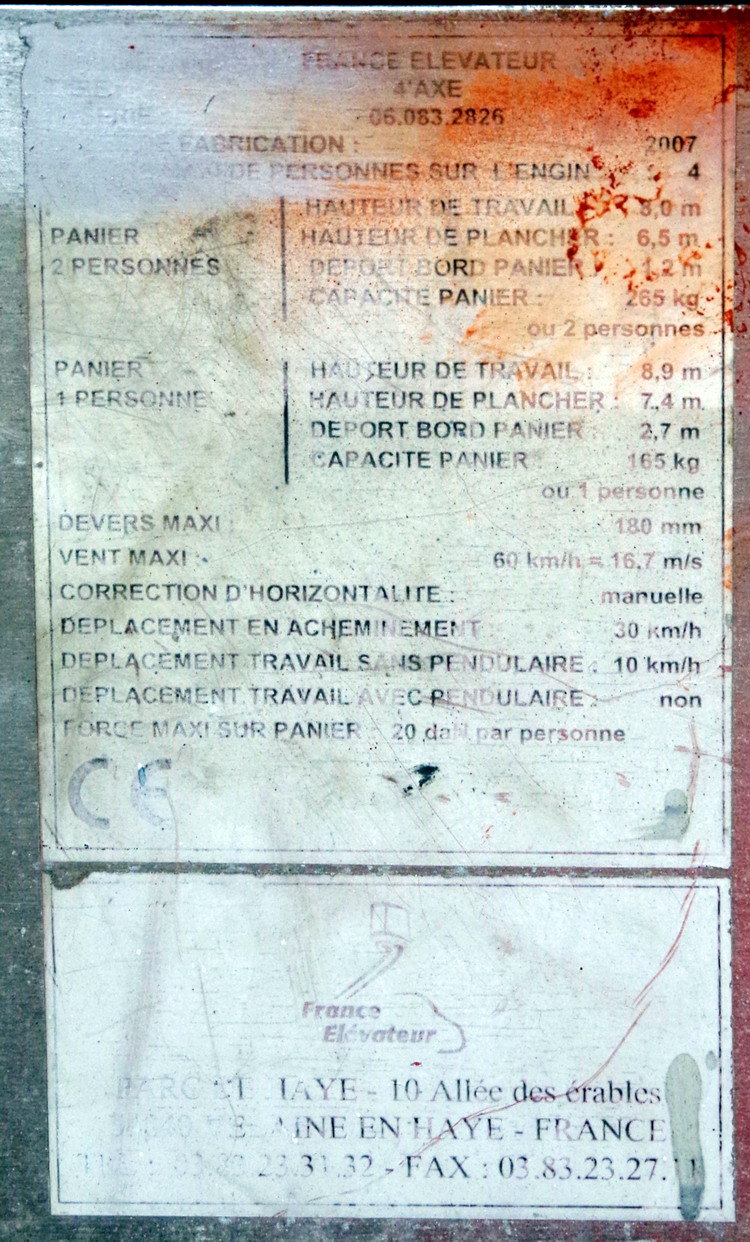 FRANCE ELEVATEUR
4'AXE
SERIE 06.083.2826
FABRICATION : 2007
DE PERSONNES SUR L'ENGIN 4
HAUTEUR DE TRAVAIL : 8,0 m
PANIER HAUTEUR DE PLANCHER : 6,5 m
2 PERSONNES DEPORT BORD PANIER : 1,2 m
CAPACITE PANIER : 265 kg
ou 2 personnes
PANIER HAUTEUR DE TRAVAIL : 8,9 m
1 PERSONNE HAUTEUR DE PLANCHER : 7,4 m
DEPORT BORD PANIER : 2,7 m
CAPACITE PANIER : 165 kg
ou 1 personne
DEVERS MAXI : 180 mm
VENT MAXI : 60 km/h = 16,7 m/s
CORRECTION D'HORIZONTALITE : manuelle
DEPLACEMENT EN ACHEMINEMENT : 30 km/h
DEPLACEMENT TRAVAIL SANS PENDULAIRE : 10 km/h
DEPLACEMENT TRAVAIL AVEC PENDULAIRE : non
FORCE MAXI SUR PANIER : 20 daN par personne
CE
France
Elévateur
PARC DE HAYE - 10 Allée des érables
EN HAYE - FRANCE
23.31.32 - FAX : 03.83.23.27.